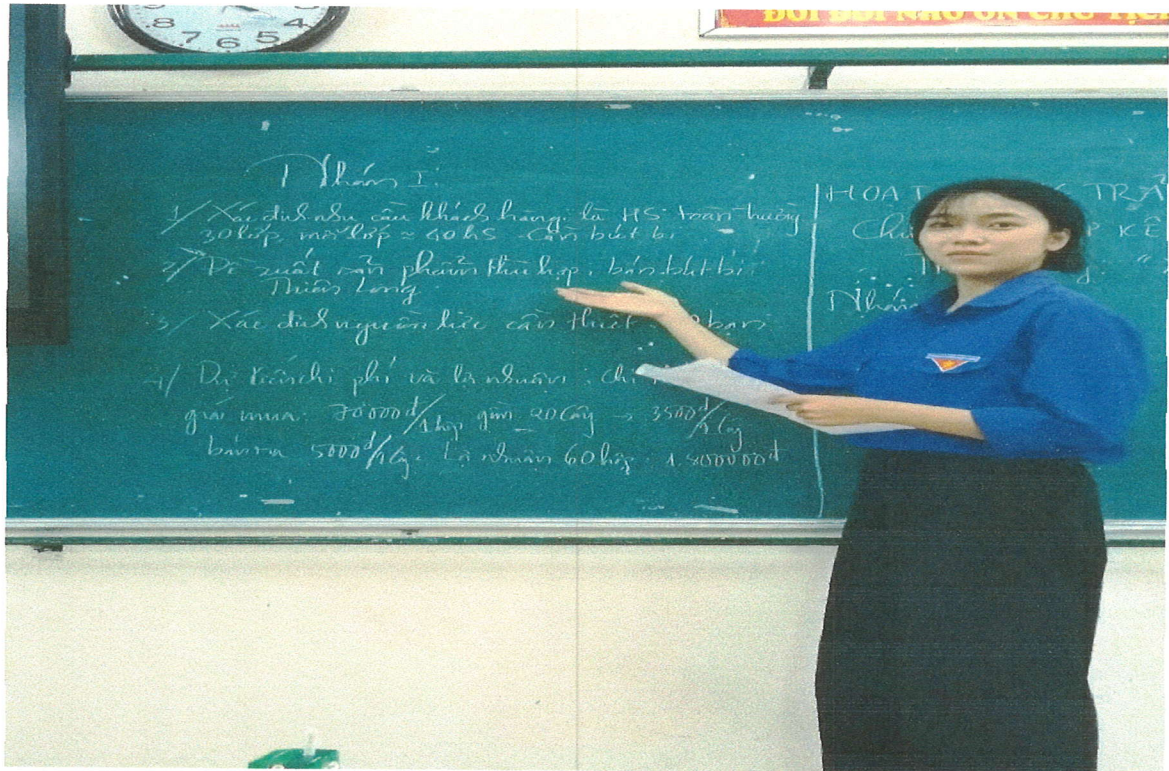 ĐỜI ĐỜI NHỚ ƠN CHỦ TỊCH
8 7 6 5 4
Nhóm I:
1/ Xác định nhu cầu khách hàng: là HS toàn trường
30 lớp, mỗi lớp ≈ 40hs cần bút bi
2/ Đề xuất sản phẩm phù hợp, bán bút bi
Thiên Long
3/ Xác định nguồn lực cần thiết bạn
4/ Dự kiến chi phí và lợi nhuận: chi
giá mua: 70000đ/1hộp gồm 20 cây → 3500đ/1cây
bán ra 5000đ/1cây. Lợi nhuận 60 hộp: 1.800000đ
HOẠT TRẢ
Chủ P KẾ
Nhóm